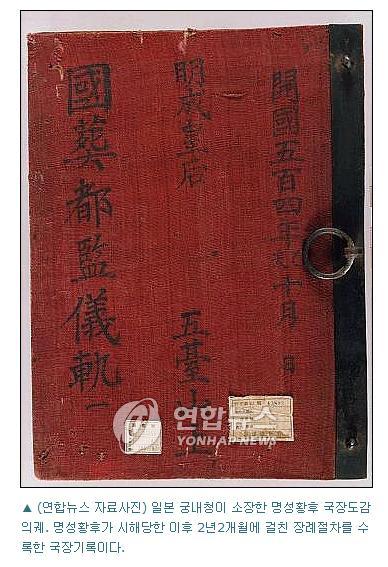 開國五百四年 十月 日
明成皇后 五臺山上
國葬都監儀軌 一
연합뉴스
YONHAPNEWS
▲ (연합뉴스 자료사진) 일본 궁내청이 소장한 명성황후 국장도감
의궤. 명성황후가 시해당한 이후 2년2개월에 걸친 장례절차를 수
록한 국장기록이다.